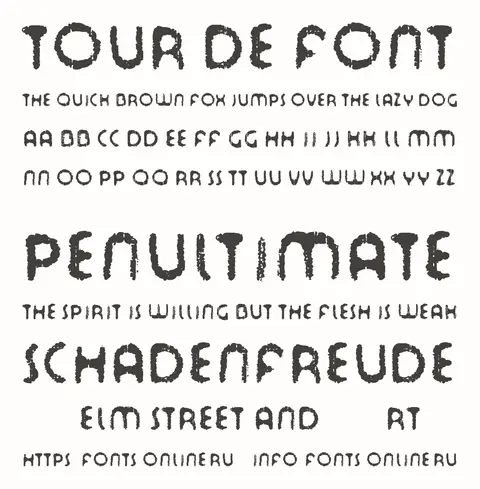 TOUR DE FONT
THE QUICK BROWN FOX JUMPS OVER THE LAZY DOG
AA BB CC DD EE FF GG HH II JJ KK LL MM
NN OO PP QQ RR SS TT UU VV WW XX YY ZZ
PENULTIMATE
THE SPIRIT IS WILLING BUT THE FLESH IS WEAK
SCHADENFREUDE
ELM STREET AND RT
HTTPS FONTS ONLINE RU INFO FONTS ONLINE RU